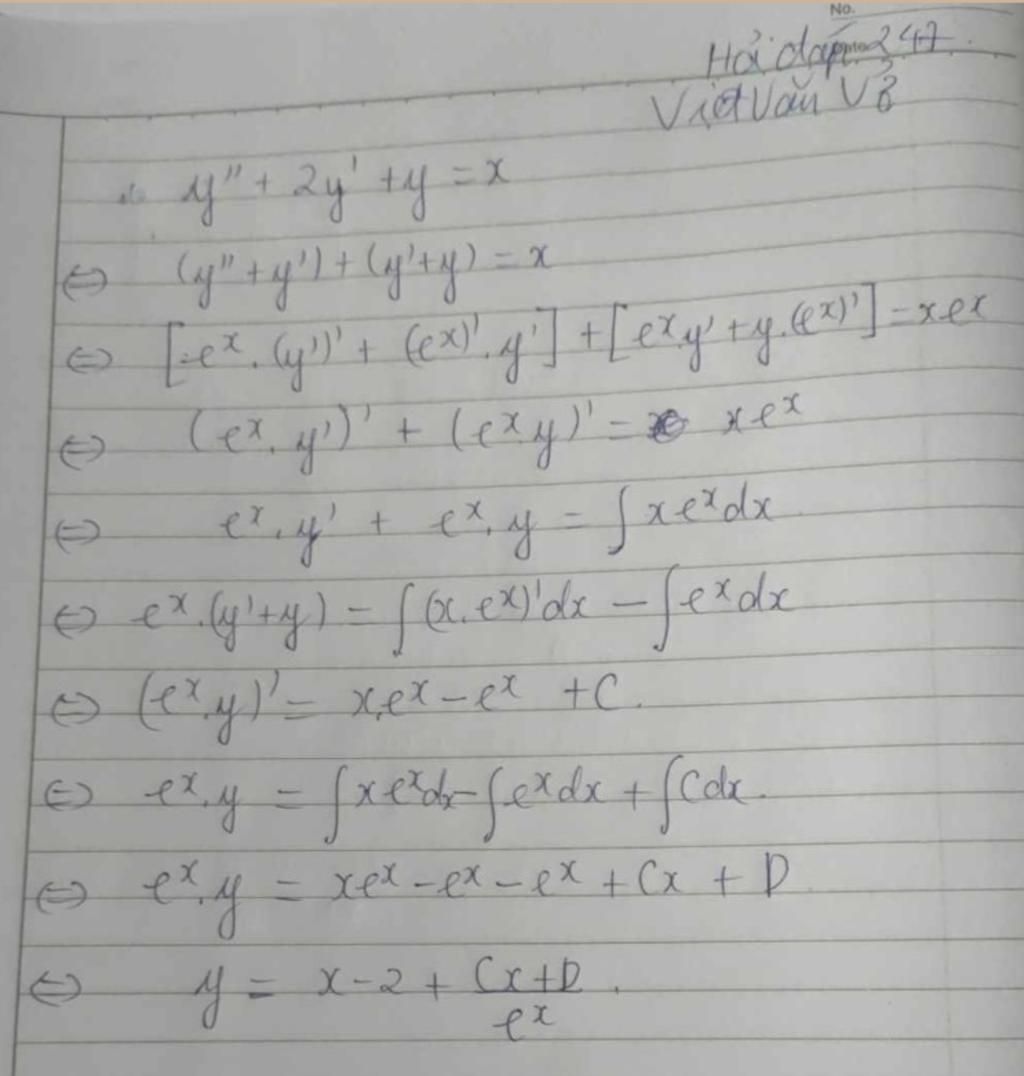 No.
Hỏi đáp 247
Việt Văn Võ
y" + 2y' + y = x
⇔ (y" + y') + (y' + y) = x
⇔ [e^x . (y')' + (e^x)' . y'] + [e^x y' + y . (e^x)'] = x e^x
⇔ (e^x . y')' + (e^x y)' = x e^x
⇔ e^x . y' + e^x . y = ∫ x e^x dx
⇔ e^x . (y' + y) = ∫ (x . e^x)' dx − ∫ e^x dx
⇔ (e^x . y)' = x . e^x − e^x + C.
⇔ e^x . y = ∫ x e^x dx − ∫ e^x dx + ∫ C dx.
⇔ e^x . y = x e^x − e^x − e^x + Cx + D
⇔ y = x − 2 + (Cx + D)/e^x .